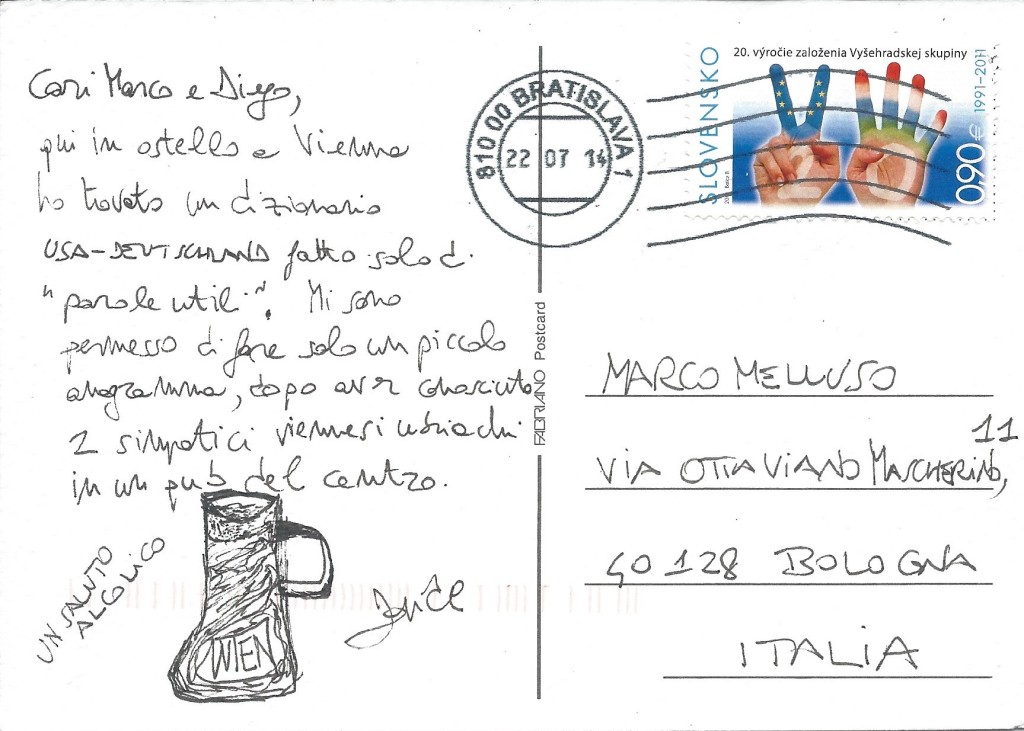 Cari Marco e Diego,
qui in ostello a Vienna
ho trovato un dizionario
USA-DEUTSCHLAND fatto solo di
"parole utili". Mi sono
permesso di fare solo un piccolo
anagramma, dopo aver conosciuto
2 simpatici viennesi ubriachi
in un pub del centro.
UN SALUTO
ALCOLICO
WIEN
810 00 BRATISLAVA 1
22 07 14
20. výročie založenia Vyšehradskej skupiny
SLOVENSKO
1991-2011
0,90 €
FABRIANO Postcard
MARCO MELLUSO
VIA OTTAVIANO MASCHERINO, 11
40128 BOLOGNA
ITALIA